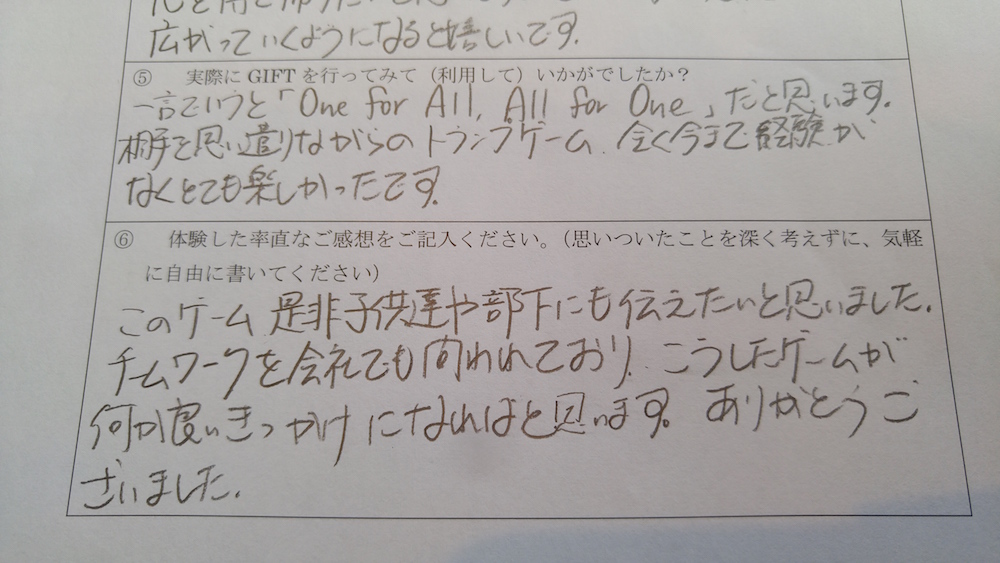 広がっていくようになると嬉しいです.
⑤ 実際に GIFT を行ってみて（利用して）いかがでしたか？
一言でいうと「One for All, All for One」だと思います.
相手を思い遣りながらのトランプゲーム. 全く今まで経験が
なくとても楽しかったです.
⑥ 体験した率直なご感想をご記入ください。（思いついたことを深く考えずに、気軽
に自由に書いてください）
このゲーム是非子供達や部下にも伝えたいと思いました.
チームワークを会社でも問われており. こうしたゲームが
何か良いきっかけになればと思います。ありがとうご
ざいました.